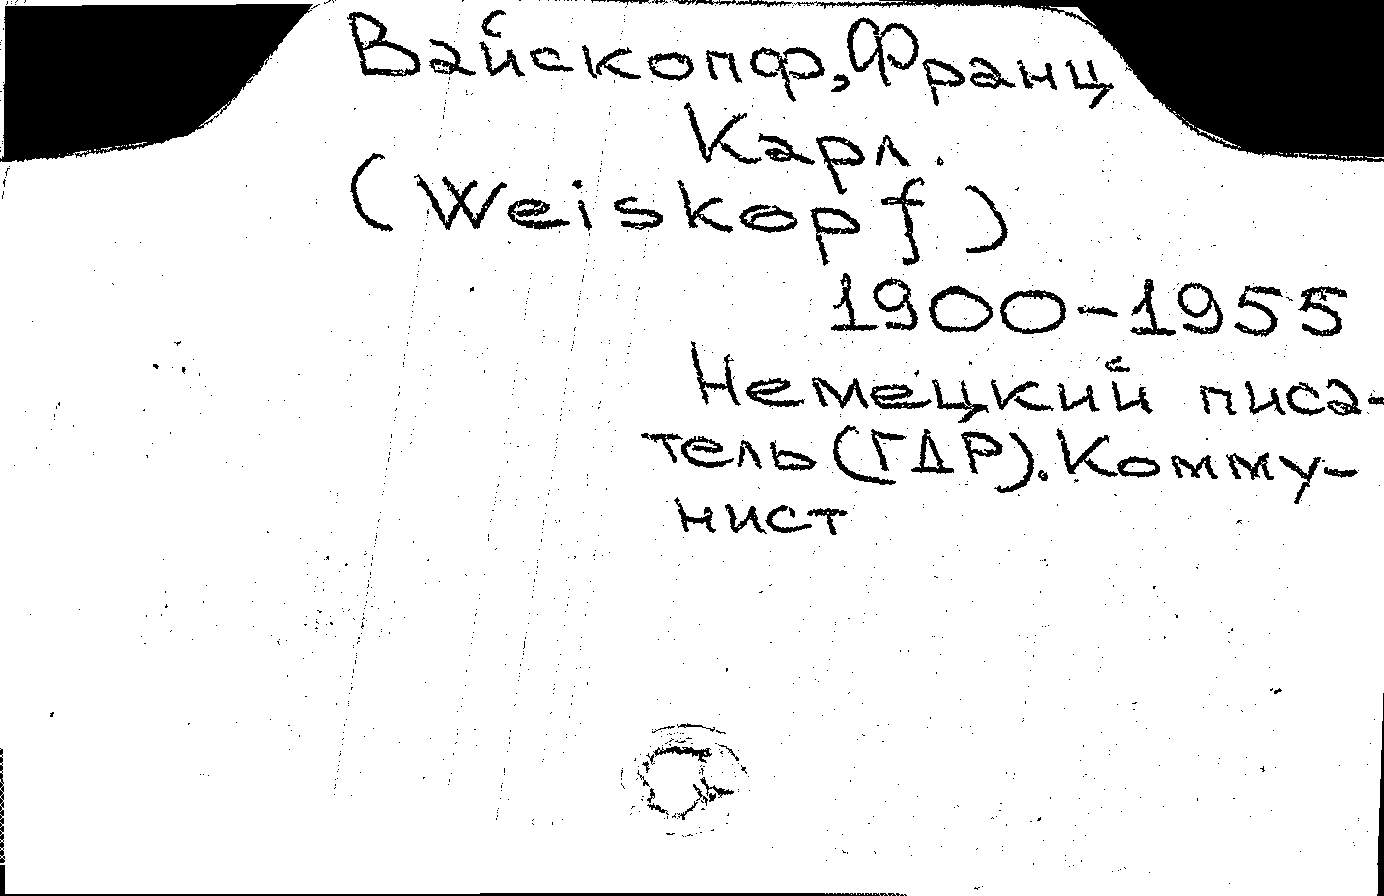 Вайскопф, Франц
Карл.
(Weiskopf)
1900-1955
Немецкий писа-
тель (ГДР). Комму-
нист